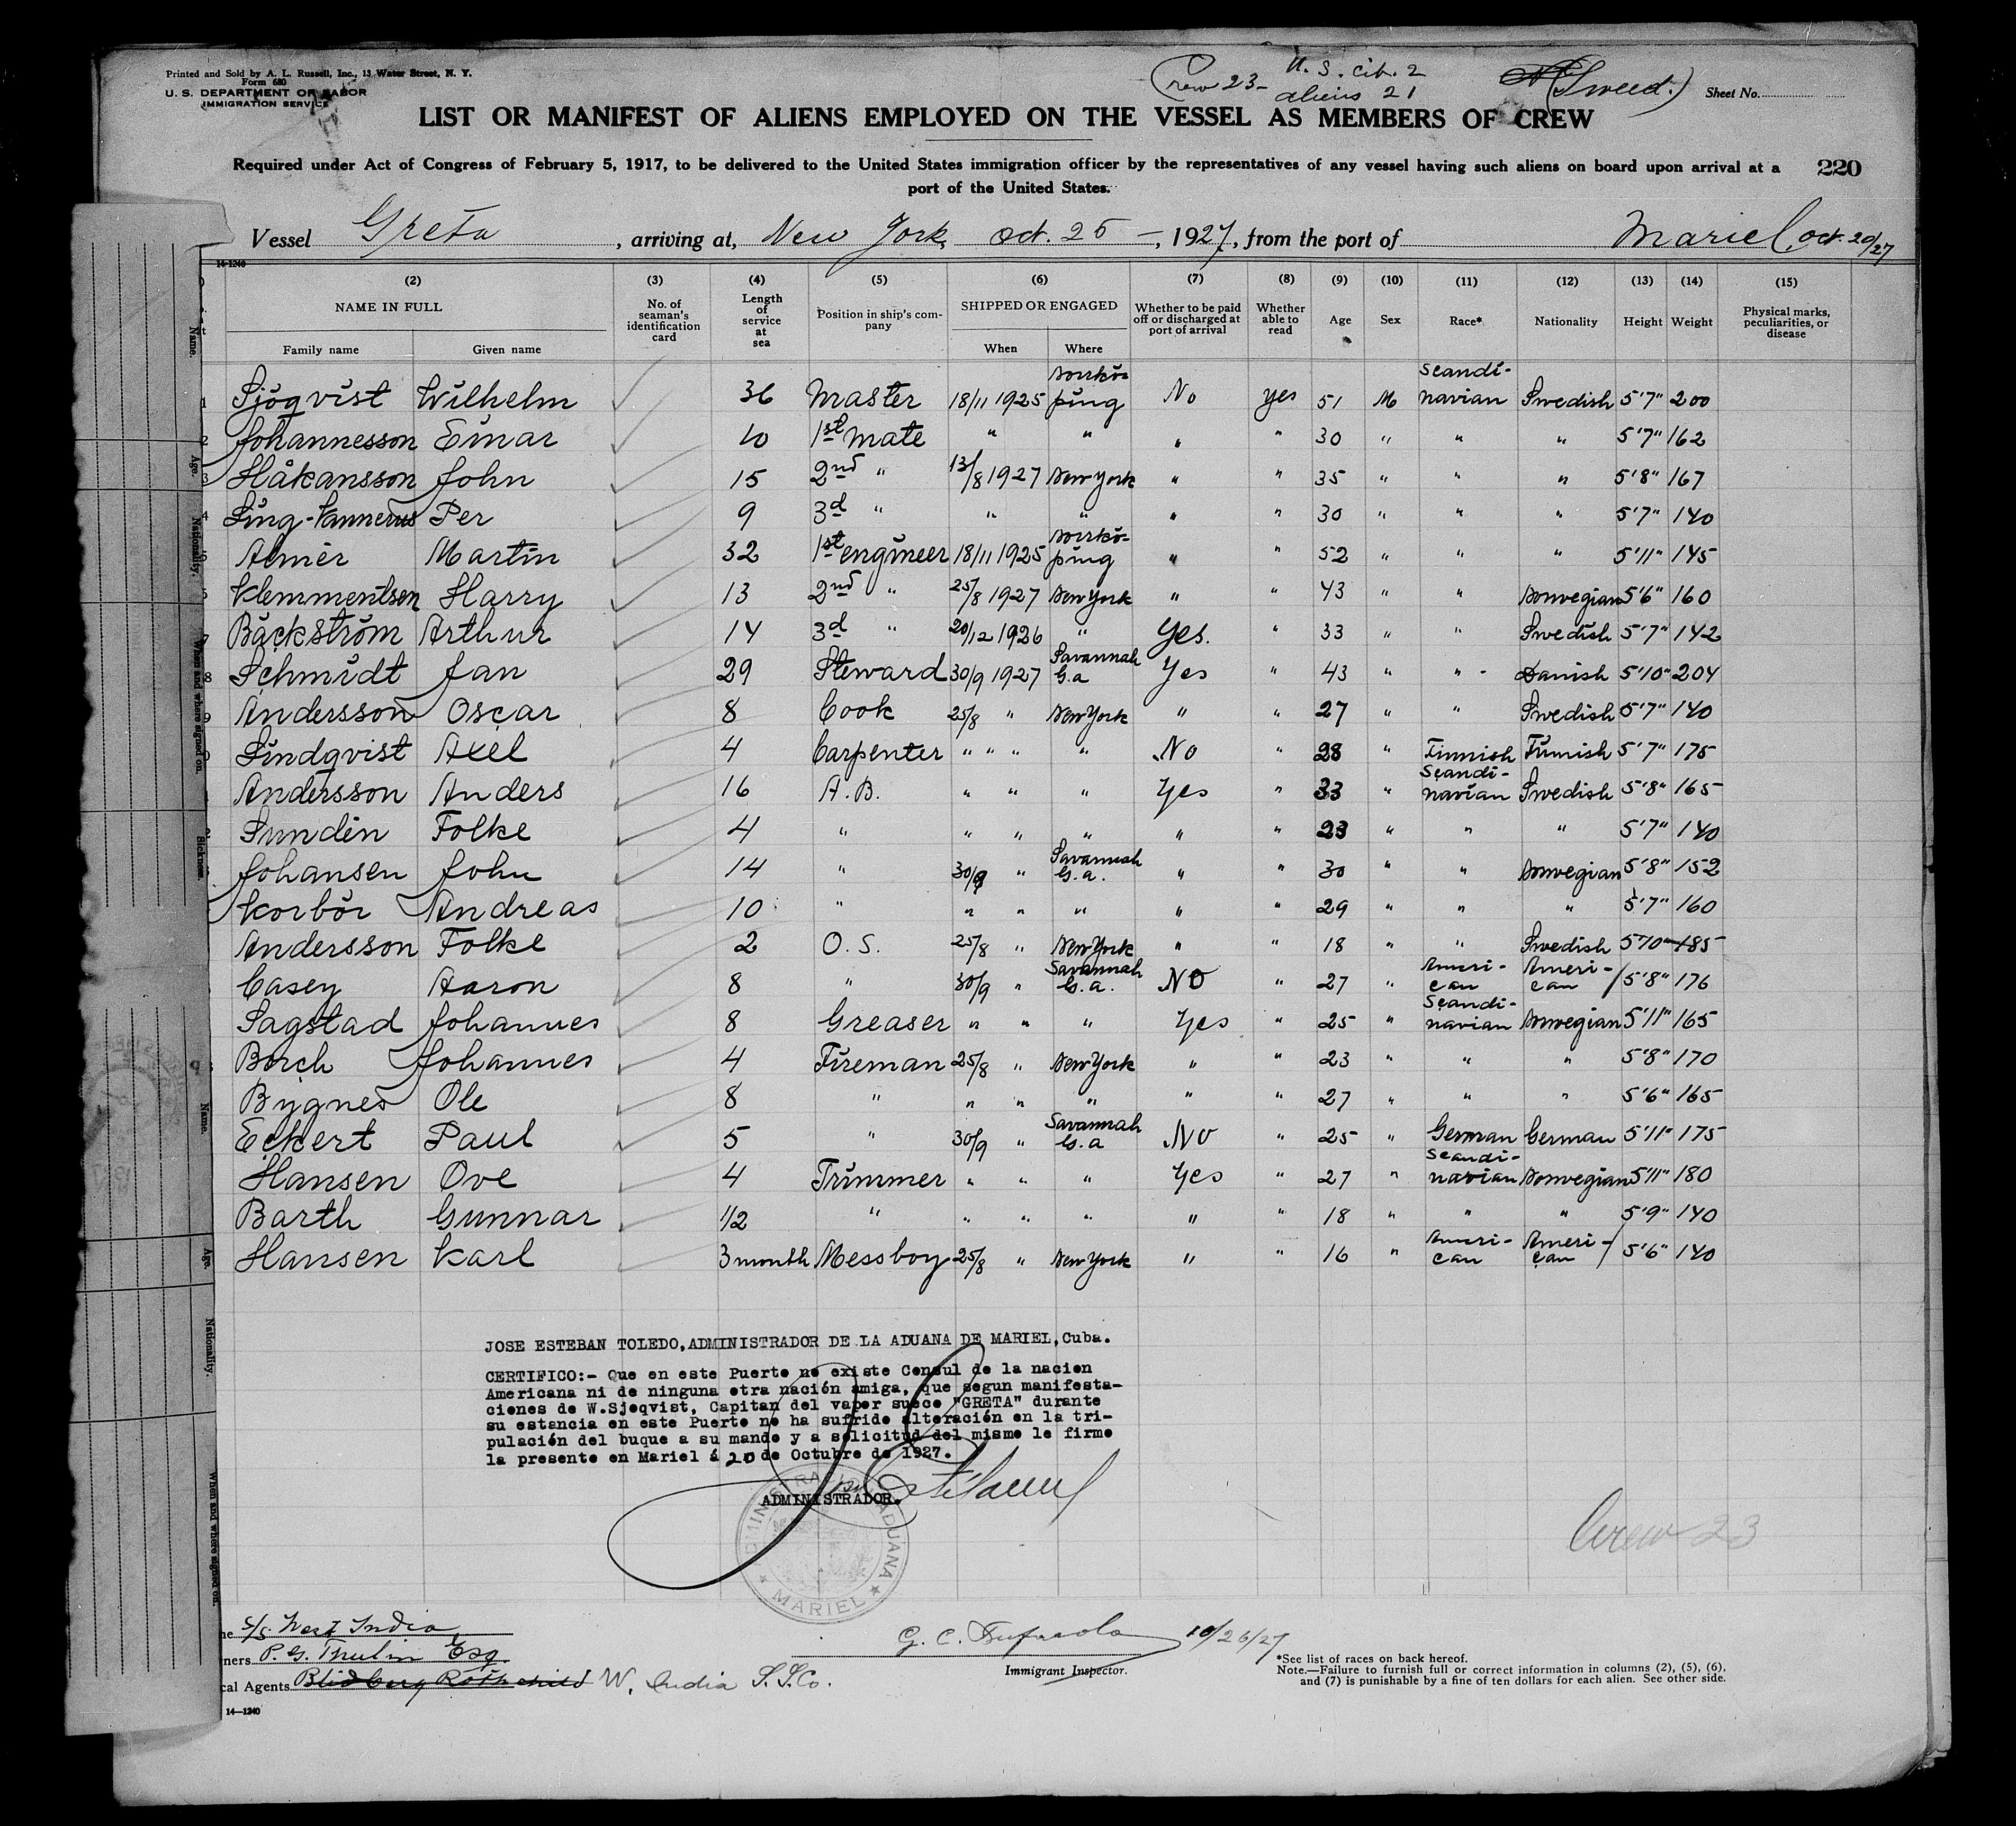 Printed and Sold by A. L. Russell, Inc., 13 Water Street, N. Y.
Form 680
U. S. DEPARTMENT OF LABOR
IMMIGRATION SERVICE
Crew 23- U. S. cit. 2
aliens 21
(Swed.) Sheet No.
LIST OR MANIFEST OF ALIENS EMPLOYED ON THE VESSEL AS MEMBERS OF CREW
Required under Act of Congress of February 5, 1917, to be delivered to the United States immigration officer by the representatives of any vessel having such aliens on board upon arrival at a
port of the United States.
220
Vessel Greta, arriving at, New York, Oct. 25 -, 1927, from the port of Mariel, Oct. 20/27
14-1240
(2) (3) (4) (5) (6) (7) (8) (9) (10) (11) (12) (13) (14) (15)
NAME IN FULL No. of seaman's identification card Length of service at sea Position in ship's company SHIPPED OR ENGAGED Whether to be paid off or discharged at port of arrival Whether able to read Age Sex Race* Nationality Height Weight Physical marks, peculiarities, or disease
Family name Given name When Where
1 Sjöqvist Wilhelm 36 Master 18/11 1925 Norrköping No Yes 51 M Scandinavian Swedish 5'7" 200
2 Johannesson Einar 10 1st Mate " " " " 30 " " " 5'7" 162
3 Håkansson John 15 2nd " 13/8 1927 New York " " 35 " " " 5'8" 167
4 Ling-Vannerus Per 9 3d " " " " " 30 " " " 5'7" 140
5 Almér Martin 32 1st engineer 18/11 1925 Norrköping " " 52 " " " 5'11" 145
Klemmentsen Harry 13 2nd " 25/8 1927 New York " " 43 " " Norwegian 5'6" 160
7 Bäckström Arthur 14 3d " 20/12 1926 " Yes. " 33 " " Swedish 5'7" 142
8 Schmidt Jan 29 Steward 30/9 1927 Savannah G.a Yes " 43 " " Danish 5'10" 204
9 Andersson Oscar 8 Cook 25/8 " New York " " 27 " " Swedish 5'7" 140
Lindqvist Axel 4 Carpenter " " " " No " 28 " Finnish Finnish 5'7" 175
Andersson Anders 16 A.B. " " " Yes " 33 " Scandinavian Swedish 5'8" 165
Sundén Folke 4 " " " " " " 23 " " " 5'7" 140
Johansen John 14 " 30/9 " Savannah G.a. " " 30 " " Norwegian 5'8" 152
Korbör Andreas 10 " " " " " " 29 " " " 5'7" 160
Andersson Folke 2 O.S. 25/8 " New York " " 18 " " Swedish 5'10" 185
Casey Aaron 8 " 30/9 " Savannah G.a. No " 27 " American American 5'8" 176
Sagstad Johannes 8 Greaser " " " Yes " 25 " Scandinavian Norwegian 5'11" 165
Borch Johannes 4 Fireman 25/8 " New York " " 23 " " " 5'8" 170
Bygnes Ole 8 " " " " " " 27 " " " 5'6" 165
Eckert Paul 5 " 30/9 " Savannah G.a No " 25 " German German 5'11" 175
Hansen Ove 4 Trimmer " " " Yes " 27 " Scandinavian Norwegian 5'11" 180
Barth Gunnar 1/2 " " " " " " 18 " " " 5'9" 140
Hansen Karl 3 month Messboy 25/8 " New York " " 16 " American American 5'6" 140
JOSE ESTEBAN TOLEDO, ADMINISTRADOR DE LA ADUANA DE MARIEL, Cuba.
CERTIFICO:- Que en este Puerto no existe Consul de la nacion
Americana ni de ninguna otra nación amiga, que segun manifesta-
ciones de W.Sjoqvist, Capitan del vapor sueco "GRETA" durante
su estancia en este Puerto no ha sufrido alteración en la tri-
pulación del buque a su mando y a solicitud del mismo le firmo
la presente en Mariel á 20 de Octubre de 1927.
ADMINISTRADOR.
ADMINISTRACION ADUANA
★ MARIEL ★
Crew 23
S/S. West India
ners P. G. Thulin Esq
cal Agents Blidberg Rothchild W. India S.S.Co.
14—1240
G. C. 10/26/27
Immigrant Inspector.
*See list of races on back hereof.
Note.—Failure to furnish full or correct information in columns (2), (5), (6),
and (7) is punishable by a fine of ten dollars for each alien. See other side.
Name.
Age.
Nationality.
When and where signed on.
Sickness.
Name.
Age.
Nationality.
When and where signed on.